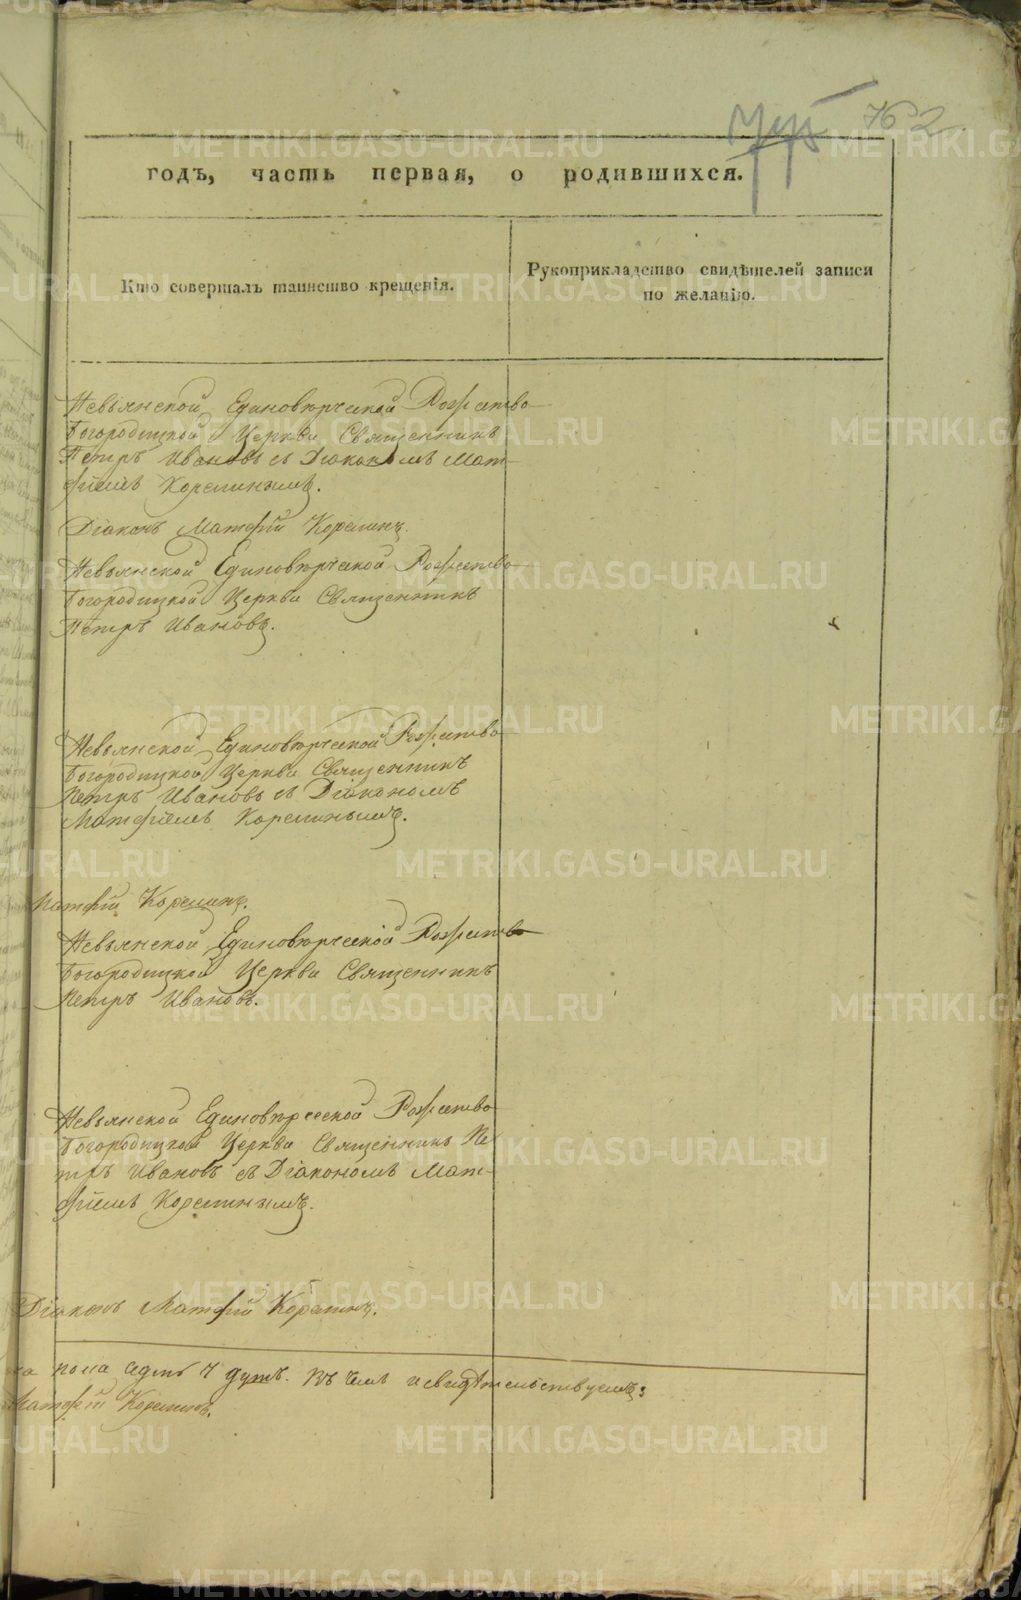 762
годъ, часть первая, о родившихся.
Кто совершалъ таинство крещенія.
Рукоприкладство свидѣтелей записи
по желанію.
Невьянской Единовѣрческой Рожество
Богородицкой Церкви Священникъ
Петръ Ивановъ съ Діакономъ Мат-
фіемъ Корелинымъ.
Діаконъ Матфій Корелинъ.
Невьянской Единовѣрческой Рожество
Богородицкой Церкви Священникъ
Петръ Ивановъ.
Невьянской Единовѣрческой Рожество
Богородицкой Церкви Священникъ
Петръ Ивановъ съ Діакономъ
Матфіемъ Корелинымъ.
Матфій Корелинъ.
Невьянской Единовѣрческой Рожество
Богородицкой Церкви Священникъ
Петръ Ивановъ.
Невьянской Единовѣрческой Рожество
Богородицкой Церкви Священникъ Пе
тръ Ивановъ съ Діакономъ Мат-
фіемъ Корелинымъ.
Діаконъ Матфій Корелинъ.
пола семь 7 душъ. Въ чемъ и свидѣтельствуемъ:
Матфій Корелинъ.
METRIKI.GASO-URAL.RU